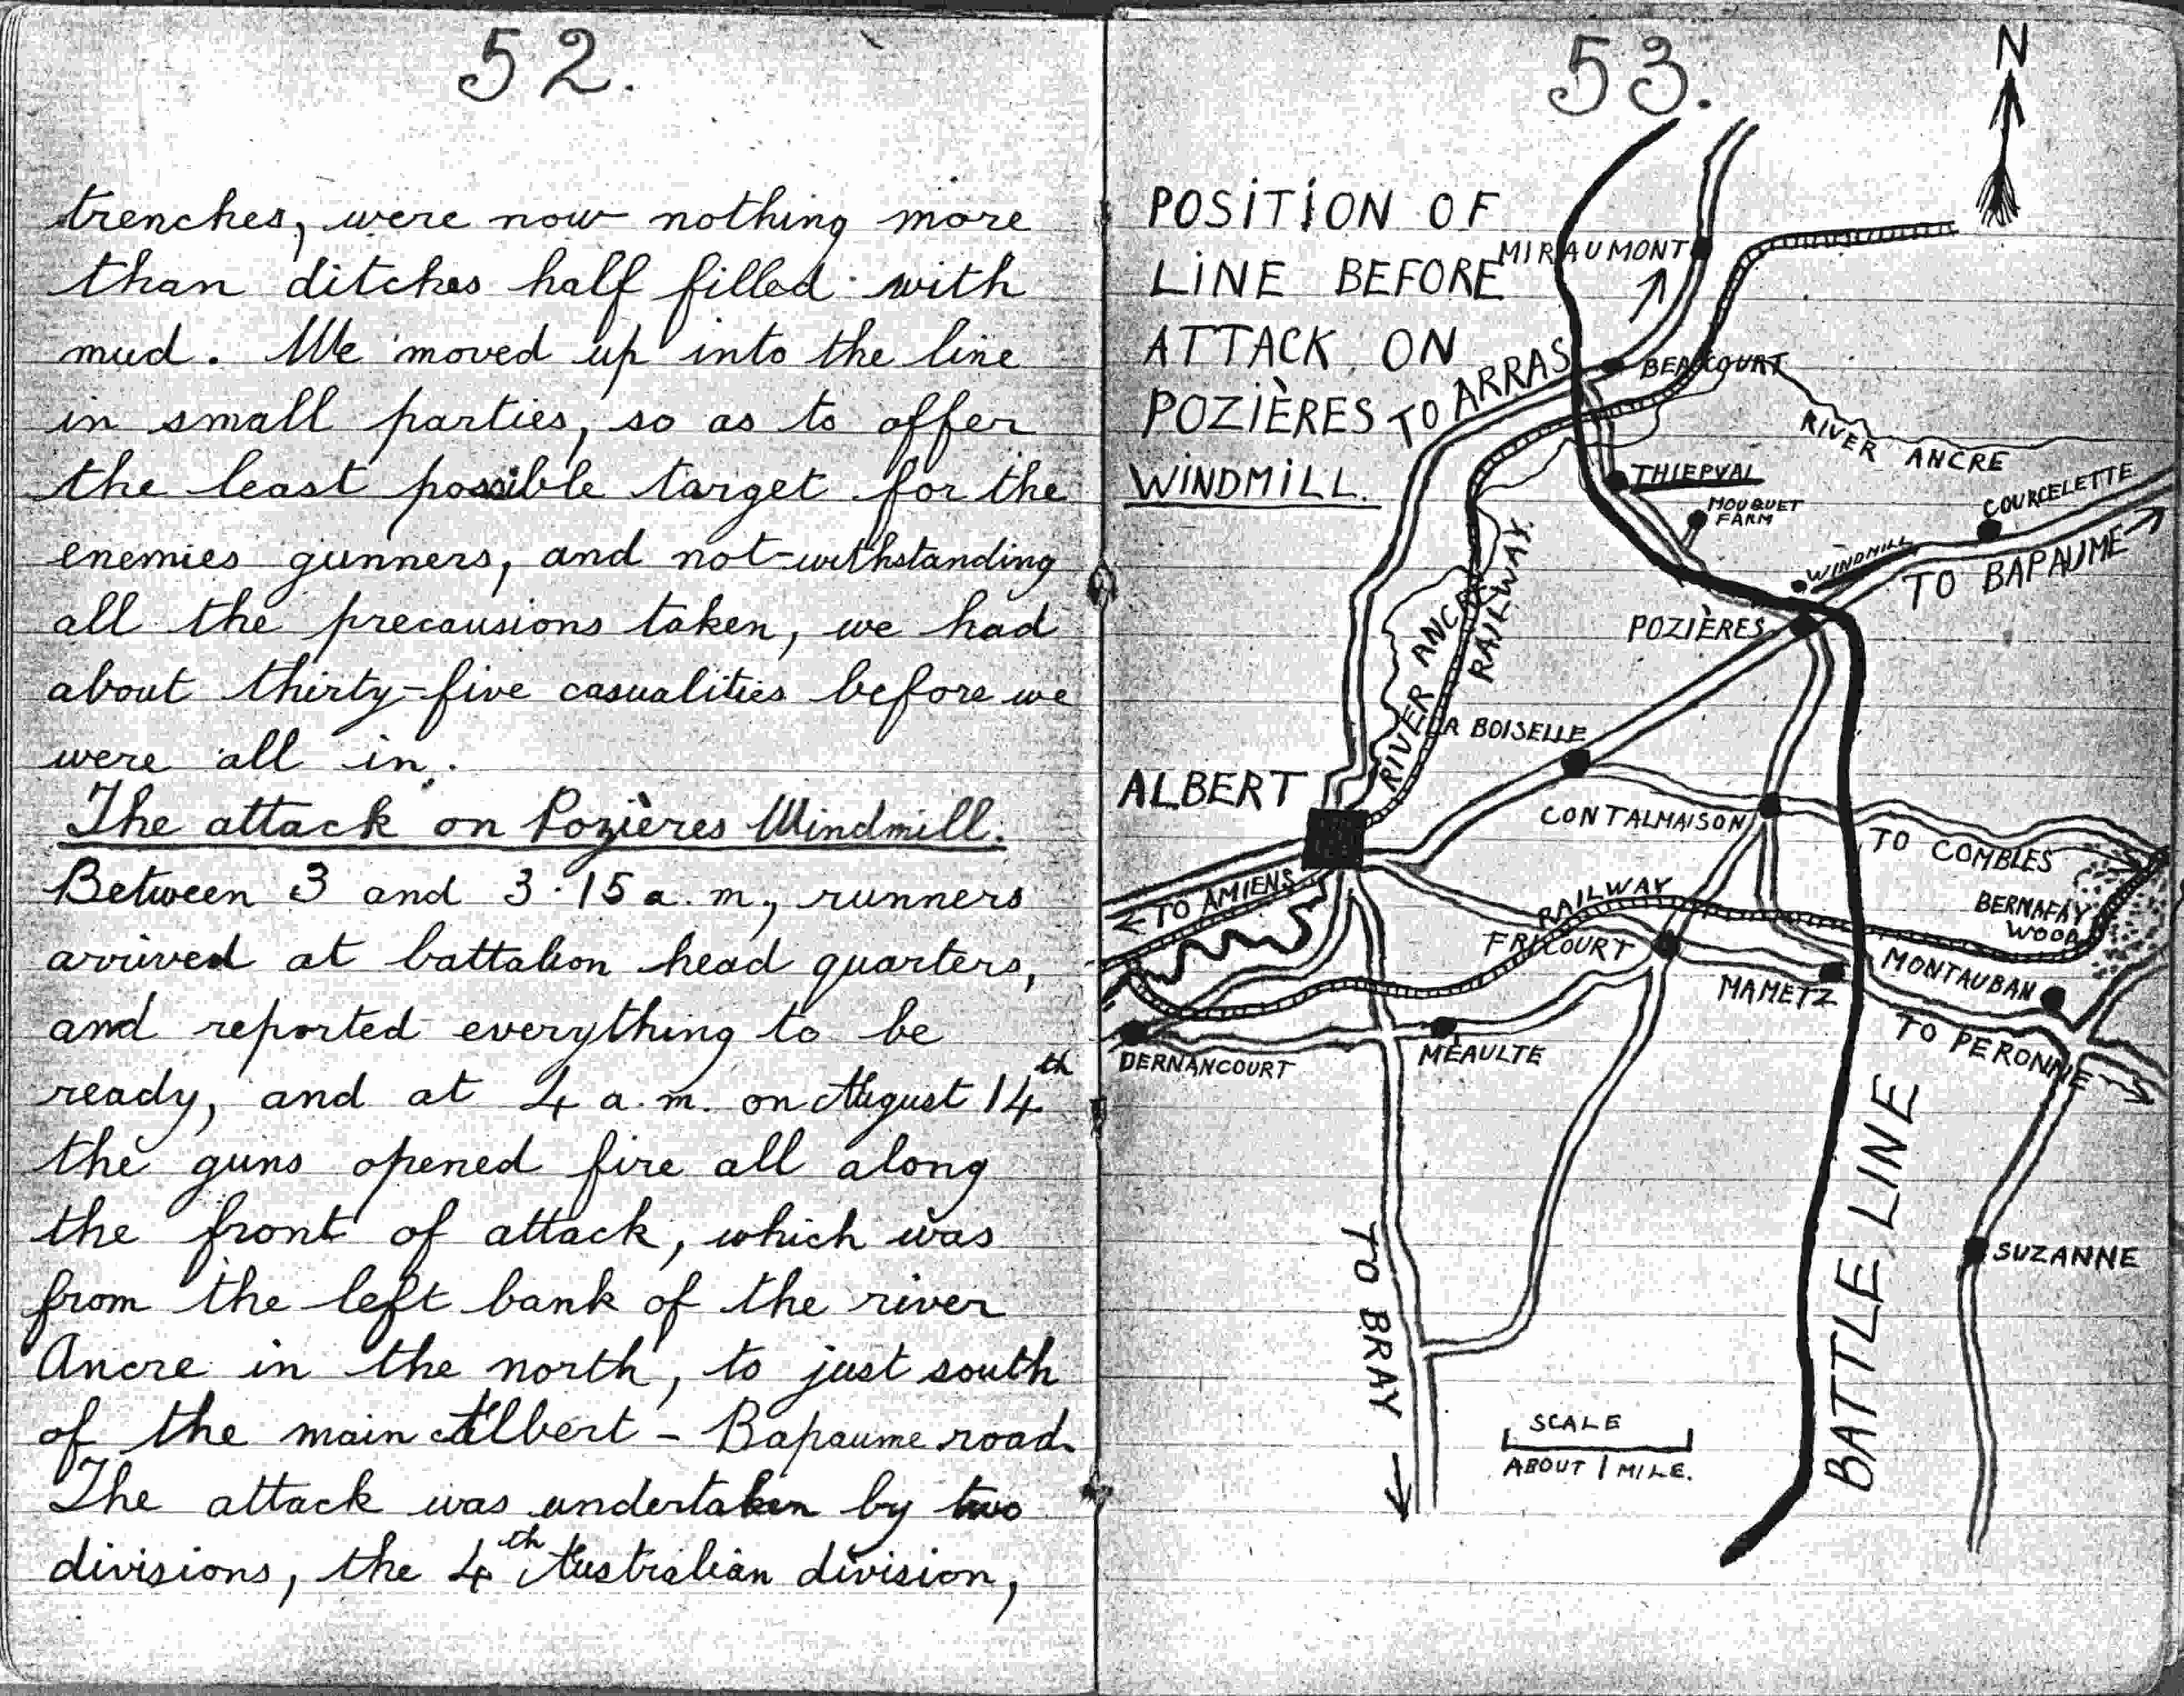 52.
trenches, were now nothing more
than ditches half filled with
mud. We moved up into the line
in small parties, so as to offer
the least possible target for the
enemies gunners, and not-withstanding
all the precausions taken, we had
about thirty-five casualities before we
were all in.
The attack on Pozières Windmill.
Between 3 and 3.15 a.m, runners
arrived at battalion head quarters,
and reported everything to be
ready, and at 4 a.m. on August 14th
the guns opened fire all along
the front of attack, which was
from the left bank of the river
Ancre in the north, to just south
of the main Albert - Bapaume road.
The attack was undertaken by two
divisions, the 4th Australian division,
53.
N
POSITION OF
LINE BEFORE
ATTACK ON
POZIÈRES
WINDMILL.
MIRAUMONT
TO ARRAS
BEAUCOURT
RIVER ANCRE
THIEPVAL
MOUQUET
FARM
COURCELETTE
WINDMILL
TO BAPAUME
POZIÈRES
RIVER ANCRE
RAILWAY.
LA BOISELLE
ALBERT
CONTALMAISON
TO COMBLES
TO AMIENS
RAILWAY
BERNAFAY
WOOD
FRICOURT
MAMETZ
MONTAUBAN
TO PERONNE
DERNANCOURT
MEAULTE
BATTLE LINE
TO BRAY
SUZANNE
SCALE
ABOUT 1 MILE.